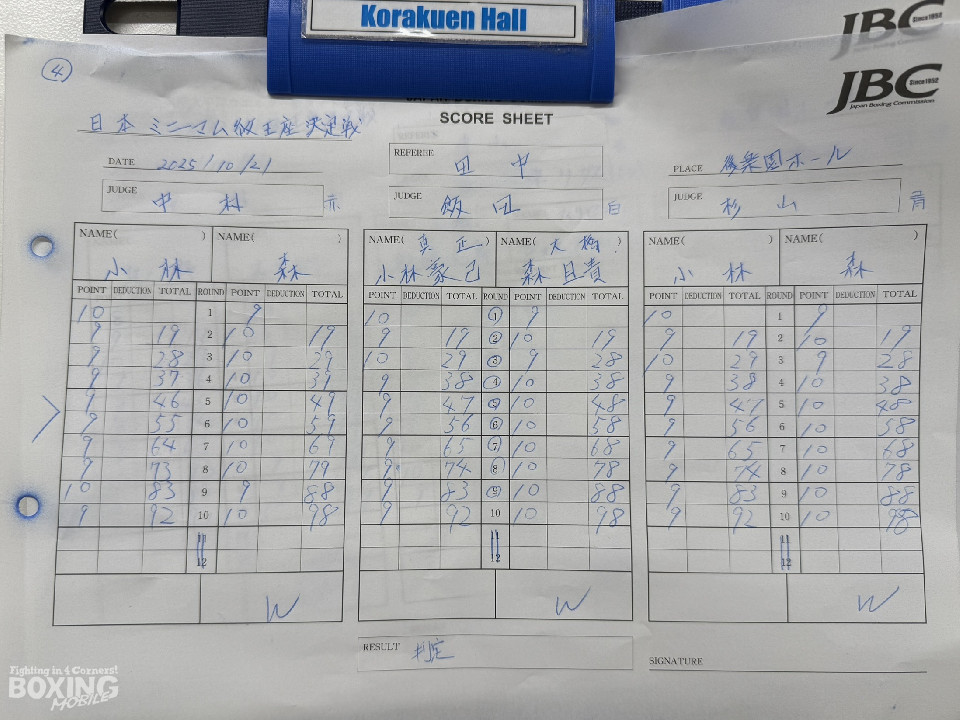 Korakuen Hall
JBC Since1952
④
JBC Since1952
Japan Boxing Commission
SCORE SHEET
日本ミニマム級王座決定戦
DATE 2025/10/21
REFEREE 田中
PLACE 後楽園ホール
JUDGE 中村 赤
JUDGE 飯田 白
JUDGE 杉山 青
NAME( ) NAME( ) NAME(真正) NAME(大橋) NAME( ) NAME( )
小林 森 小林豪己 森且貴 小林 森
POINT DEDUCTION TOTAL ROUND POINT DEDUCTION TOTAL POINT DEDUCTION TOTAL ROUND POINT DEDUCTION TOTAL POINT DEDUCTION TOTAL ROUND POINT DEDUCTION TOTAL
10 1 9 10 ① 9 10 1 9
9 19 2 10 19 9 19 ② 10 19 9 19 2 10 19
9 28 3 10 29 10 29 ③ 9 28 10 29 3 9 28
9 37 4 10 39 9 38 ④ 10 38 9 38 4 10 38
9 46 5 10 49 9 47 ⑤ 10 48 9 47 5 10 48
9 55 6 10 59 9 56 ⑥ 10 58 9 56 6 10 58
9 64 7 10 69 9 65 ⑦ 10 68 9 65 7 10 68
9 73 8 10 79 9 74 ⑧ 10 78 9 74 8 10 78
10 83 9 9 88 9 83 ⑨ 10 88 9 83 9 10 88
9 92 10 10 98 9 92 10 10 98 9 92 10 10 98
11 11 11
12 12 12
W W W
RESULT 判定
SIGNATURE
Fighting in 4 Corners!
BOXING
MOBILE